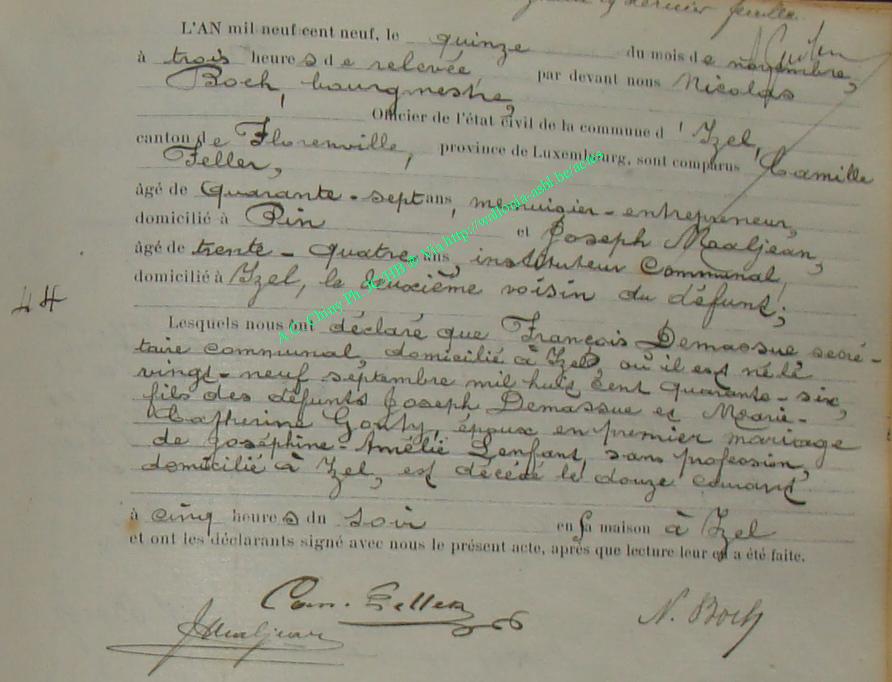 dernier feuillet
L'AN mil neuf cent neuf, le quinze du mois de novembre,
à trois heures de relevée par devant nous Nicolas
Boch, bourgmestre,
Officier de l'état civil de la commune d'Izel,
canton de Florenville, province de Luxembourg, sont comparus Camille
Feller,
âgé de Quarante-sept ans, menuisier-entrepreneur,
domicilié à Pin et Joseph Maaljean,
âgé de trente-quatre ans, instituteur communal,
domicilié à Izel, le deuxième voisin du défunt;
44
Lesquels nous ont déclaré que François Demassue secré-
taire communal, domicilié à Izel, où il est né le
vingt-neuf septembre mil huit cent quarante-six,
fils des défunts Joseph Demassue et Marie-
Catherine Gouty, époux en premier mariage
de Joséphine-Amélie Lenfant, sans profession,
domicilié à Izel, est décédé le douze courant
à cinq heures du soir en sa maison à Izel
et ont les déclarants signé avec nous le présent acte, après que lecture leur en a été faite.
Cam. Feller
N. Boch
J Maljean
A.G. Chiny Ph. JC HB & Ma http://wallonia-asbl.be/actes